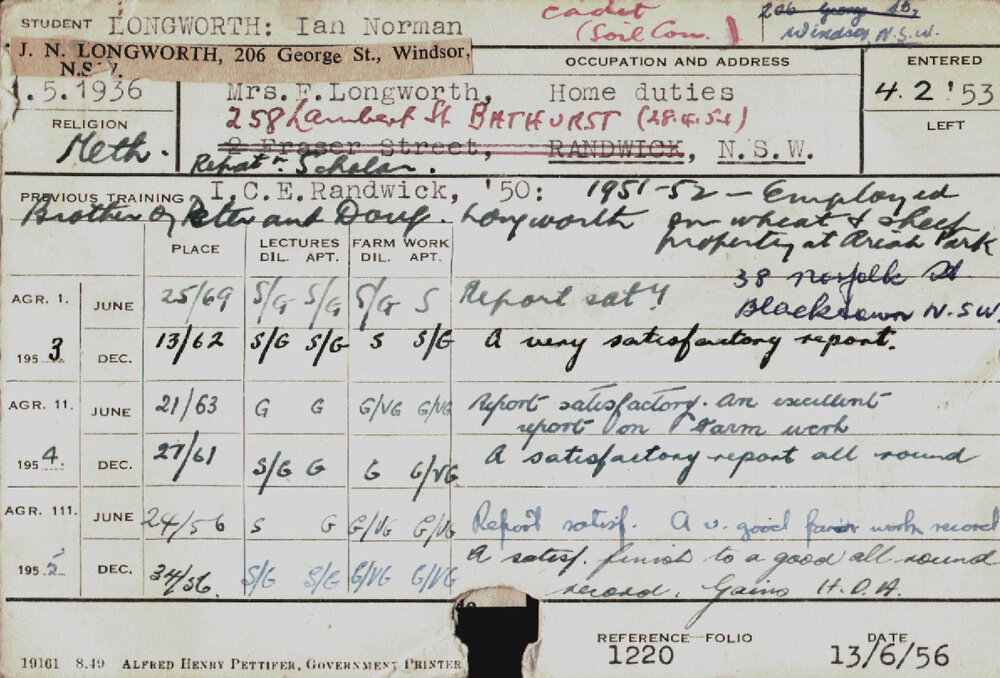 STUDENT LONGWORTH: Ian Norman
cadet
(Soil Con.)
206 George St,
Windsor, N.S.W.
J. N. LONGWORTH, 206 George St., Windsor,
N.S.W.
OCCUPATION AND ADDRESS
ENTERED
.5.1936
Mrs. F. Longworth, Home duties
4.2.'53
258 Lambert St BATHURST (28.4.54)
RELIGION
LEFT
Meth.
2 Fraser Street, RANDWICK, N.S.W.
Repat'n Scholar.
PREVIOUS TRAINING I.C.E. Randwick, '50: 1951-52 - Employed
Brother of Peter and Doug. Longworth on wheat & sheep
property at Ariah Park
PLACE LECTURES FARM WORK
DIL. APT. DIL. APT.
38 Norfolk St
Blacktown N.S.W.
AGR. 1. JUNE 25/69 S/G S/G S/G S Report sat'y
195 3 DEC. 13/62 S/G S/G S S/G A very satisfactory report.
AGR. 11. JUNE 21/63 G G G/VG G/VG Report satisfactory. An excellent
report on Farm work
195 4. DEC. 27/61 S/G G G G/VG A satisfactory report all round
AGR. 111. JUNE 24/56 S G G/VG G/VG Report satisf. A v. good farm work record
195 5 DEC. 34/56. S/G S/G G/VG G/VG A satisf. finish to a good all round
record. Gains H.D.A.
REFERENCE-FOLIO
DATE
1220
13/6/56
19161 8.49 ALFRED HENRY PETTIFER, GOVERNMENT PRINTER